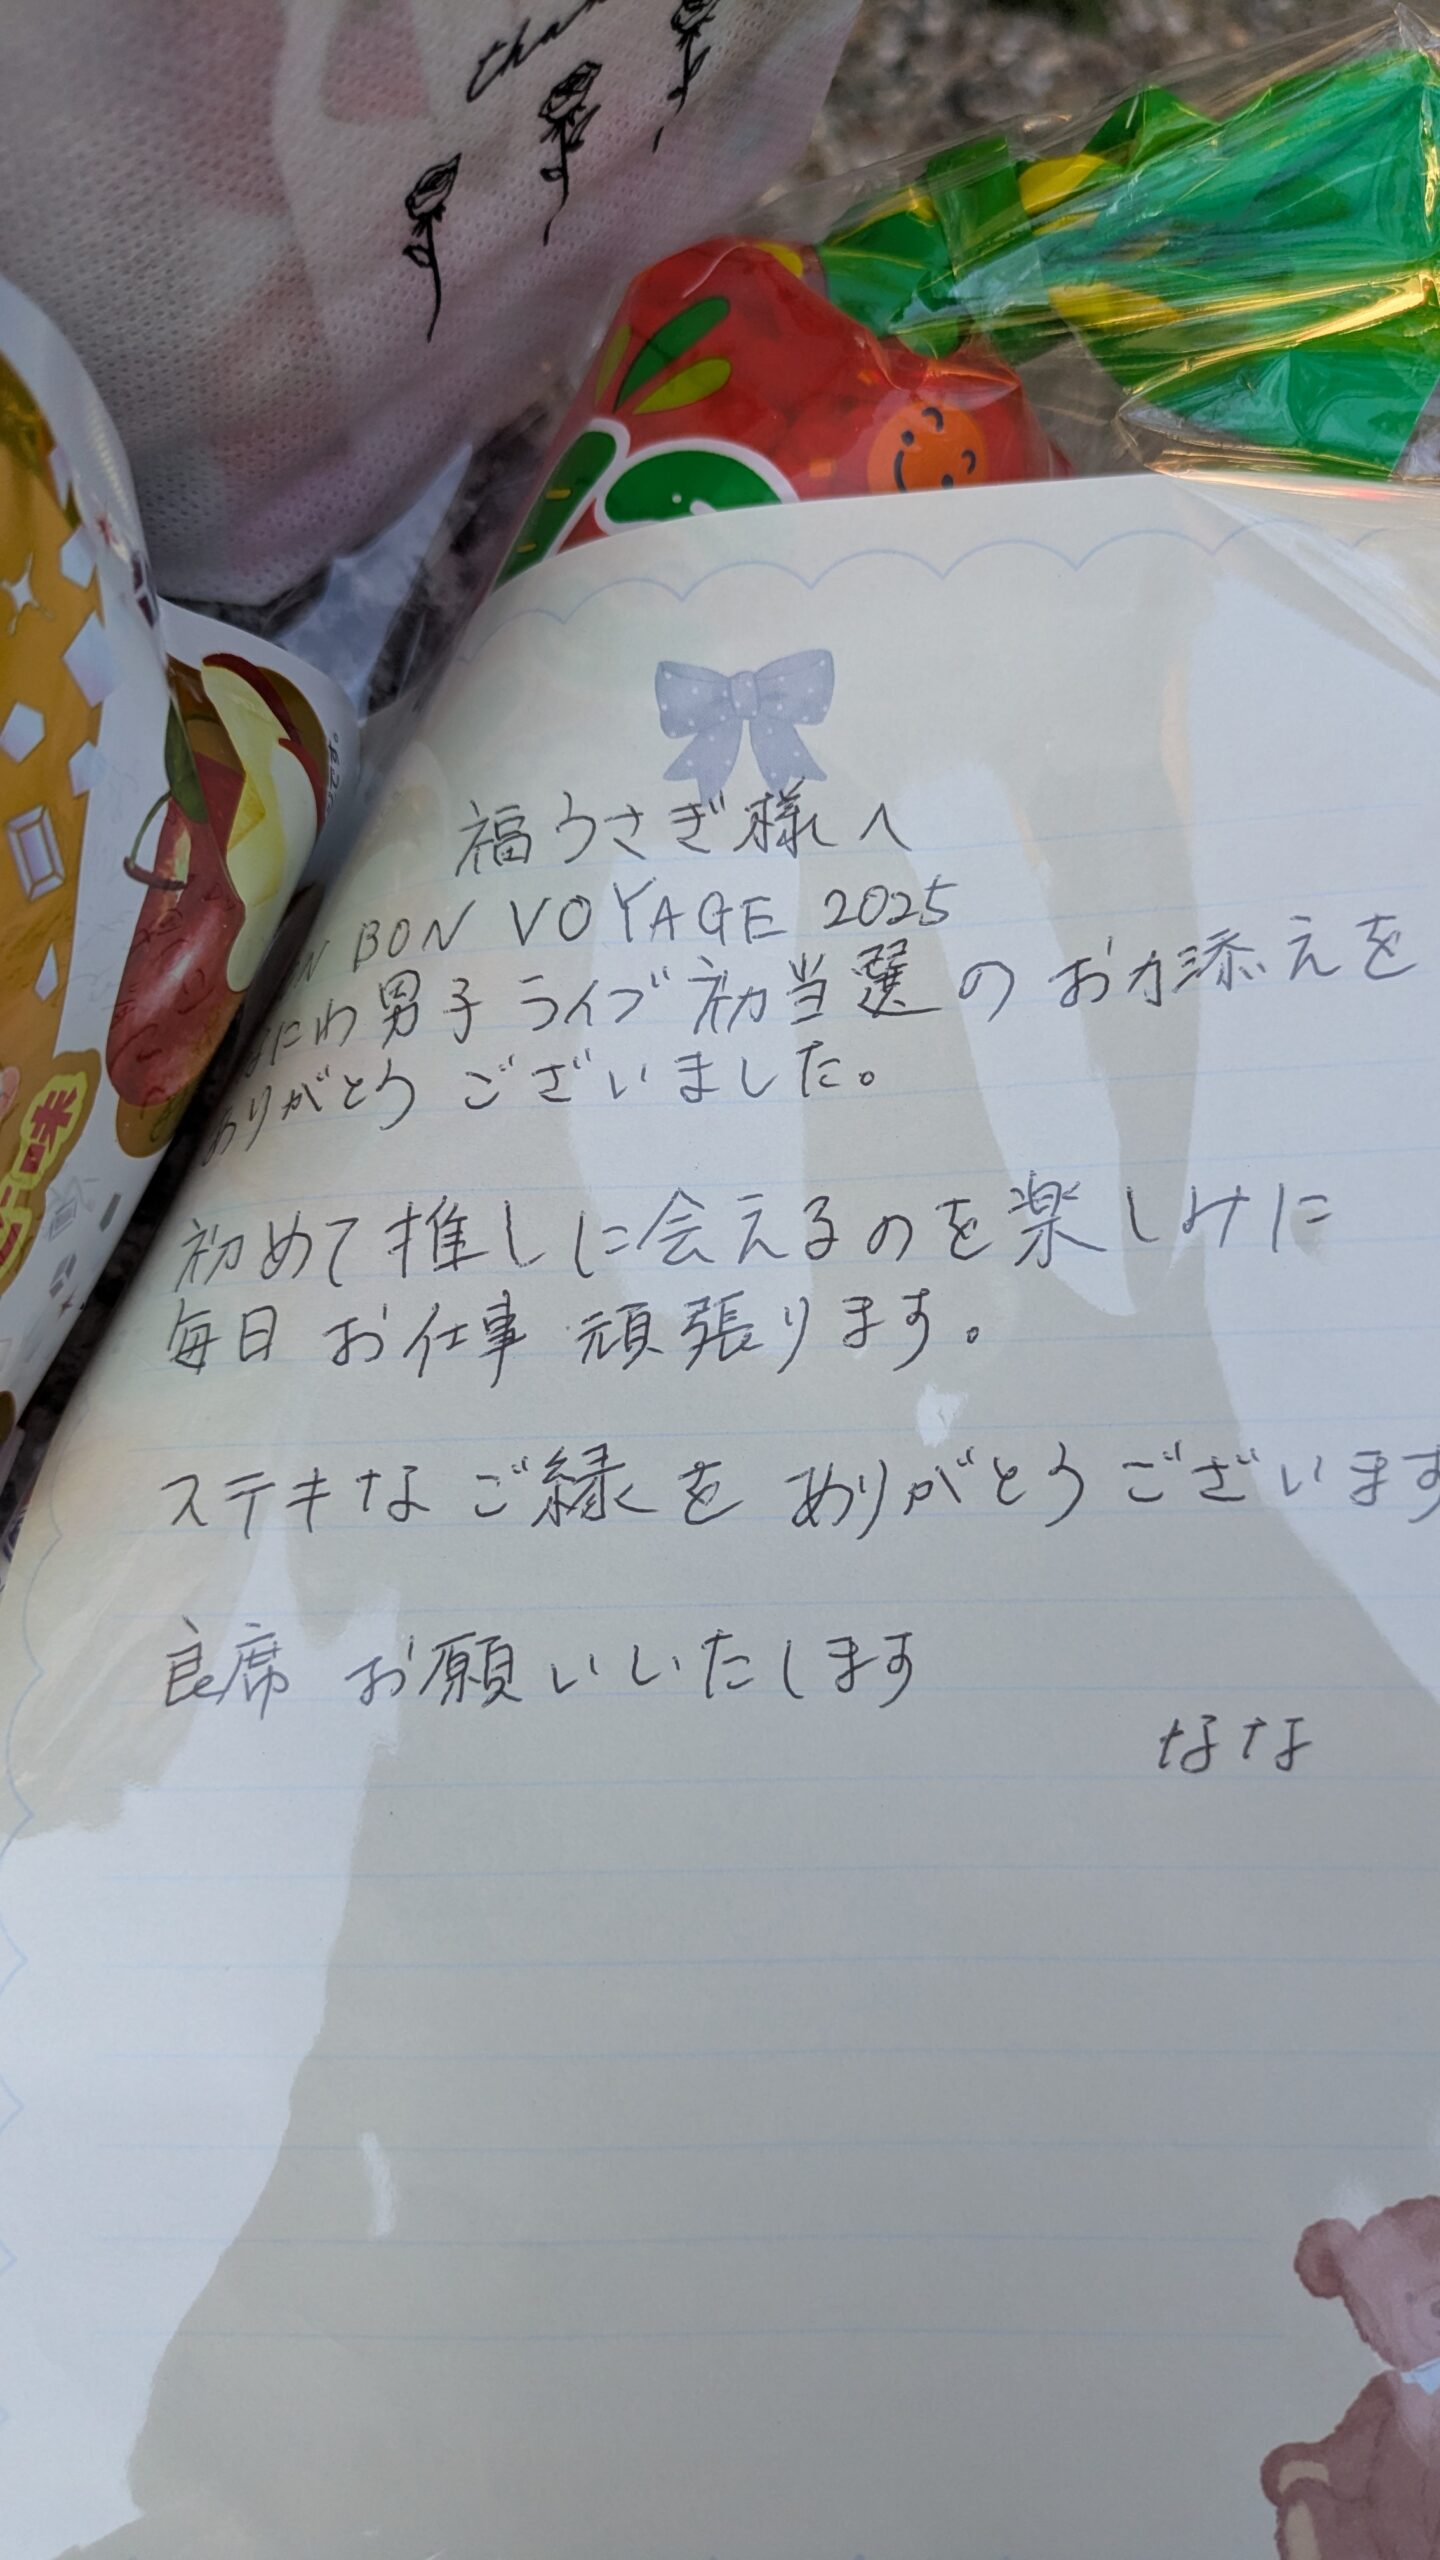 福うさぎ様へ
BON VOYAGE 2025
なにわ男子 ライブ初当選のお力添えを
ありがとう ございました。
初めて推しに会えるのを楽しみに
毎日 お仕事 頑張ります。
ステキな ご縁を ありがとうございます
良席 お願いいたします
なな
味